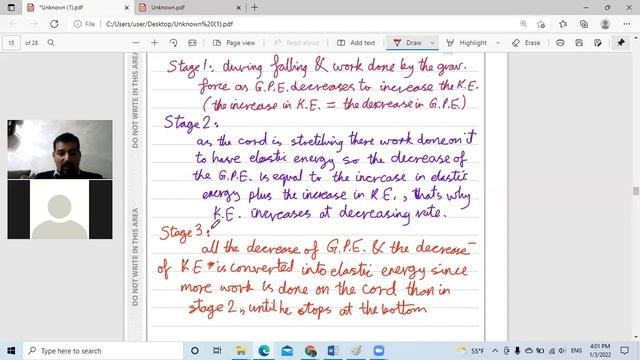 *Unknown (1).pdf
Unknown.pdf
C:/Users/user/Desktop/Unknown%20(1).pdf
15 of 28
Page view
Read aloud
Add text
Draw
Highlight
Erase
DO NOT WRITE IN THIS AREA
Stage 1: during falling & work done by the grav.
force as G.P.E. decreases to increase the K.E.
(the increase in K.E. = the decrease in G.P.E.)
Stage 2:
as the cord is stretching there work done on it
to have elastic energy so the decrease of
the G.P.E. is equal to the increase in elastic
energy plus the increase in K.E., that's why
K.E. increases at decreasing rate.
Stage 3:
all the decrease of G.P.E. & the decrease
of K.E. is converted into elastic energy since
more work is done on the cord than in
stage 2, until he stops at the bottom
DO NOT WRITE IN THIS AREA
55°F
ENG
4:01 PM
1/3/2022